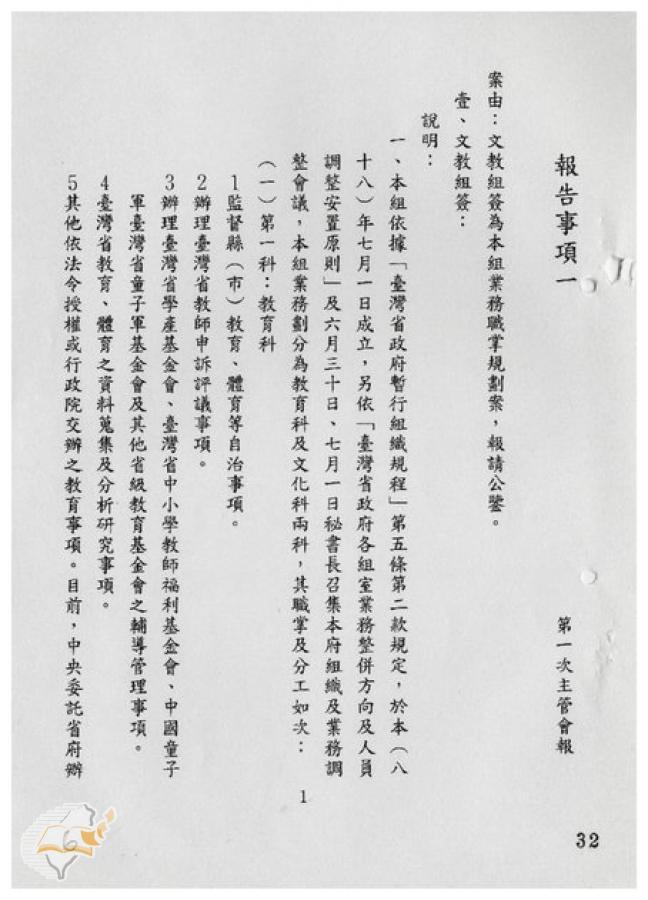 報告事項一
第一次主管會報
案由：文教組簽為本組業務職掌規劃案，報請公鑒。
壹、文教組簽：
說明：
一、本組依據「臺灣省政府暫行組織規程」第五條第二款規定，於本（八
十八）年七月一日成立，另依「臺灣省政府各組室業務整併方向及人員
調整安置原則」及六月三十日、七月一日祕書長召集本府組織及業務調
整會議，本組業務劃分為教育科及文化科兩科，其職掌及分工如次：
（一）第一科：教育科
1監督縣（市）教育、體育等自治事項。
2辦理臺灣省教師申訴評議事項。
3辦理臺灣省學產基金會、臺灣省中小學教師福利基金會、中國童子
軍臺灣省童子軍基金會及其他省級教育基金會之輔導管理事項。
4臺灣省教育、體育之資料蒐集及分析研究事項。
5其他依法令授權或行政院交辦之教育事項。目前，中央委託省府辦
1
32